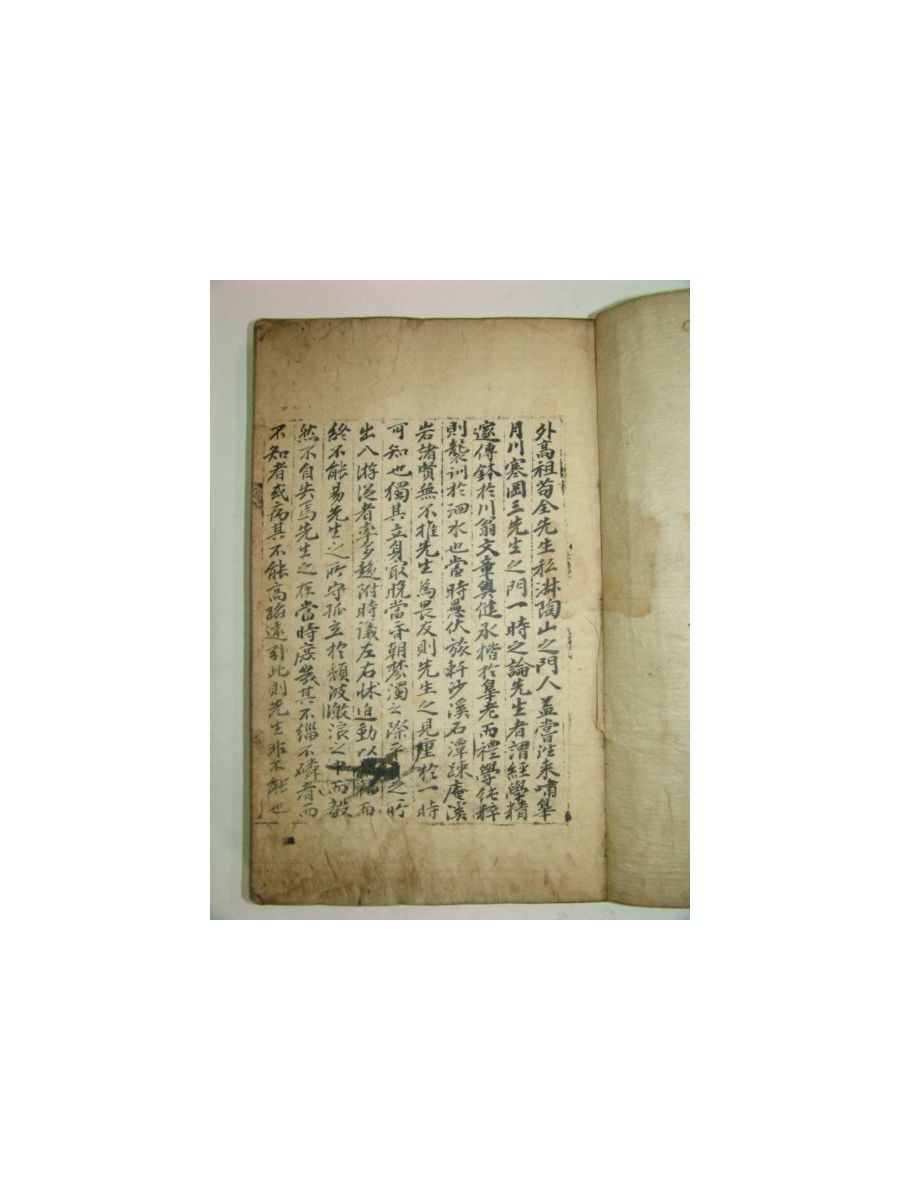 外高祖苟全先生私淋陶山之門人盖嘗往来嘯皐
月川寒岡三先生之門一時之論先生者謂經學精
邃傳鉢於川翁文章典健承楷於皐老而禮學純粹
則襲訓於泗水也當時愚伏旅軒沙溪石潭疎庵溪
岩諸賢無不推先生為畏友則先生之見重於一時
可知也獨其立身最晩當昏朝棼濁之際平日之所
出入游從者率多趍附時議左右怵迫動以禍福而
終不能易先生之所守孤立於頹波漰浪之中而毅
然不自失焉先生之在當時庶幾其不緇不磷者而
不知者或病其不能高蹈遠引此則先生非不能也